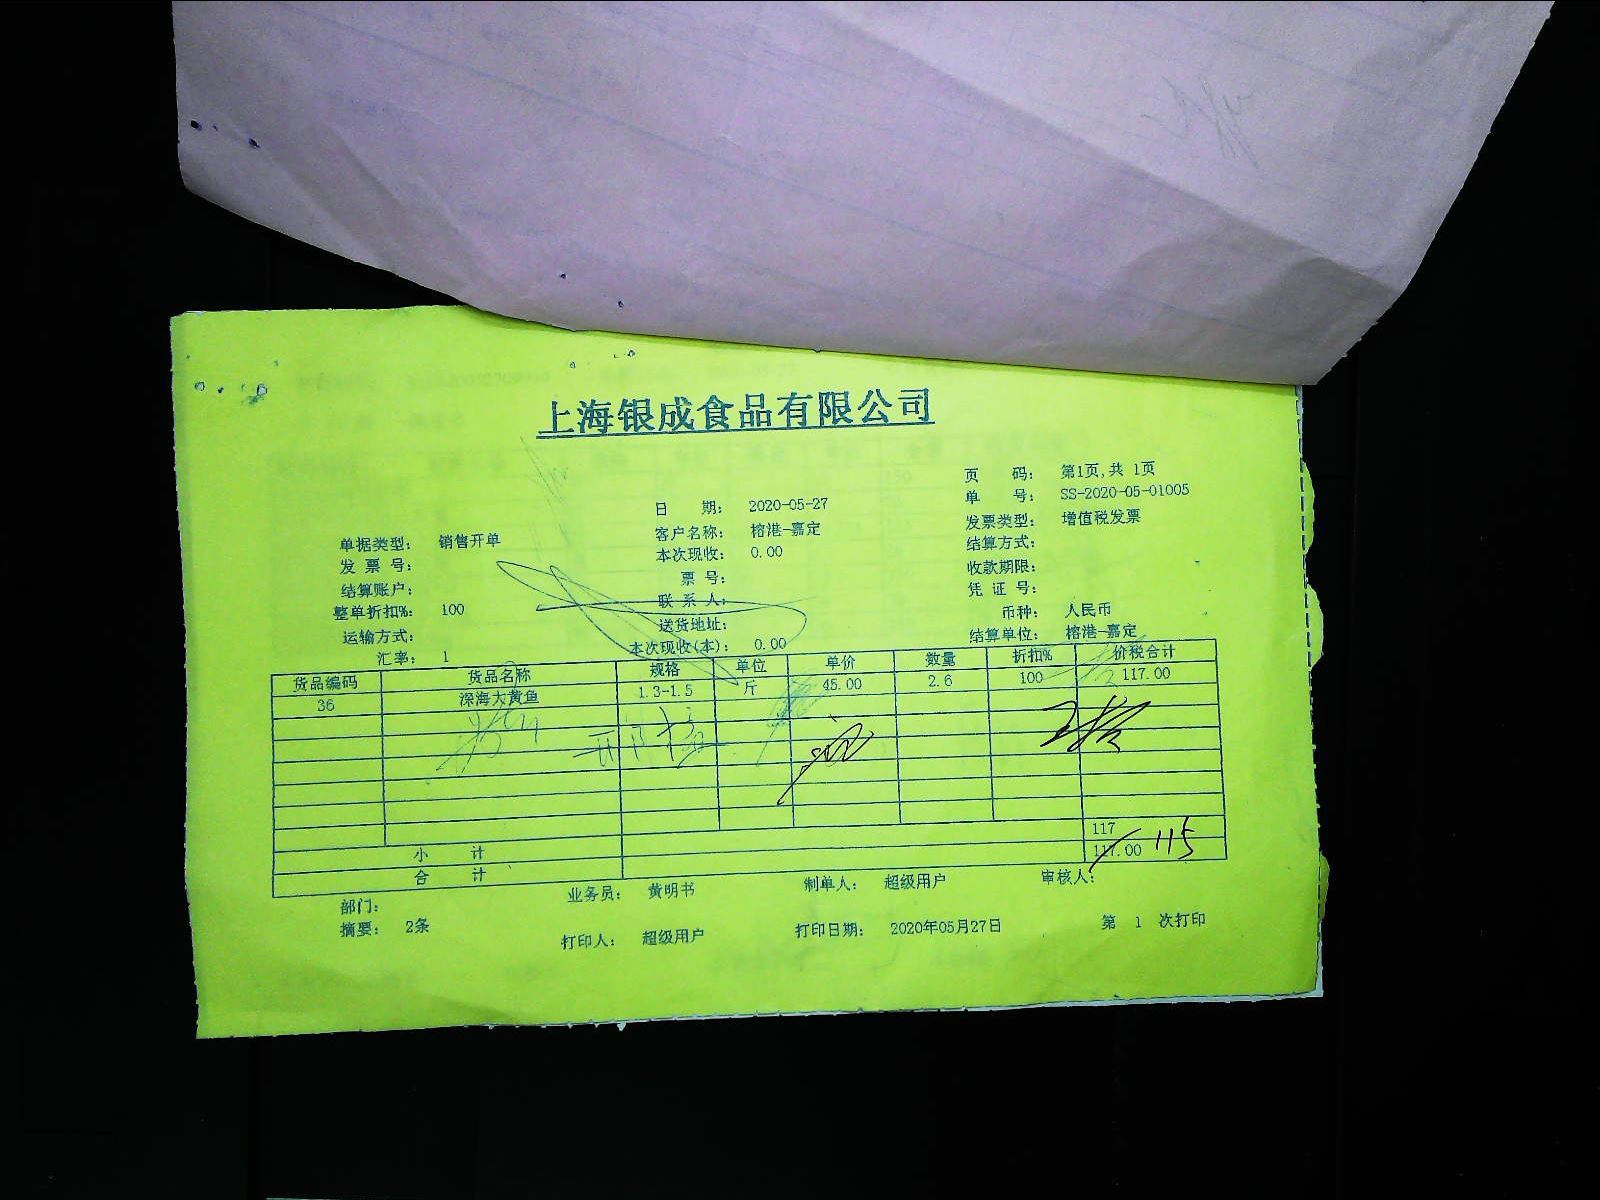 上海银成食品有限公司
页 码： 第1页,共 1页
单 号： SS-2020-05-01005
日 期： 2020-05-27
发票类型： 增值税发票
客户名称： 榕港-嘉定
单据类型： 销售开单
结算方式：
本次现收： 0.00
发 票 号：
收款期限：
票 号：
结算账户：
凭 证 号：
联 系 人：
整单折扣%： 100
币种： 人民币
送货地址：
运输方式：
结算单位： 榕港-嘉定
本次现收(本)： 0.00
汇率： 1
货品编码 货品名称 规格 单位 单价 数量 折扣% 价税合计
36 深海大黄鱼 1.3-1.5 斤 45.00 2.6 100 117.00
小 计 117
合 计 117.00 115
部门： 业务员： 黄明书 制单人： 超级用户 审核人：
摘要： 2条 打印人： 超级用户 打印日期： 2020年05月27日 第 1 次打印